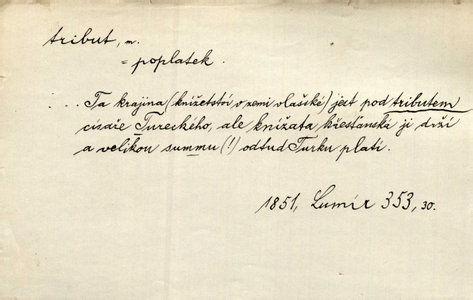 tribut, m.
= poplatek.
... Ta krajina (knížetství v zemi vlašské) jest pod tributem
císaře Tureckého, ale knížata křesťanská ji drží
a velikou summu (!) odtud Turku platí.
1851, Lumír 353, 30.